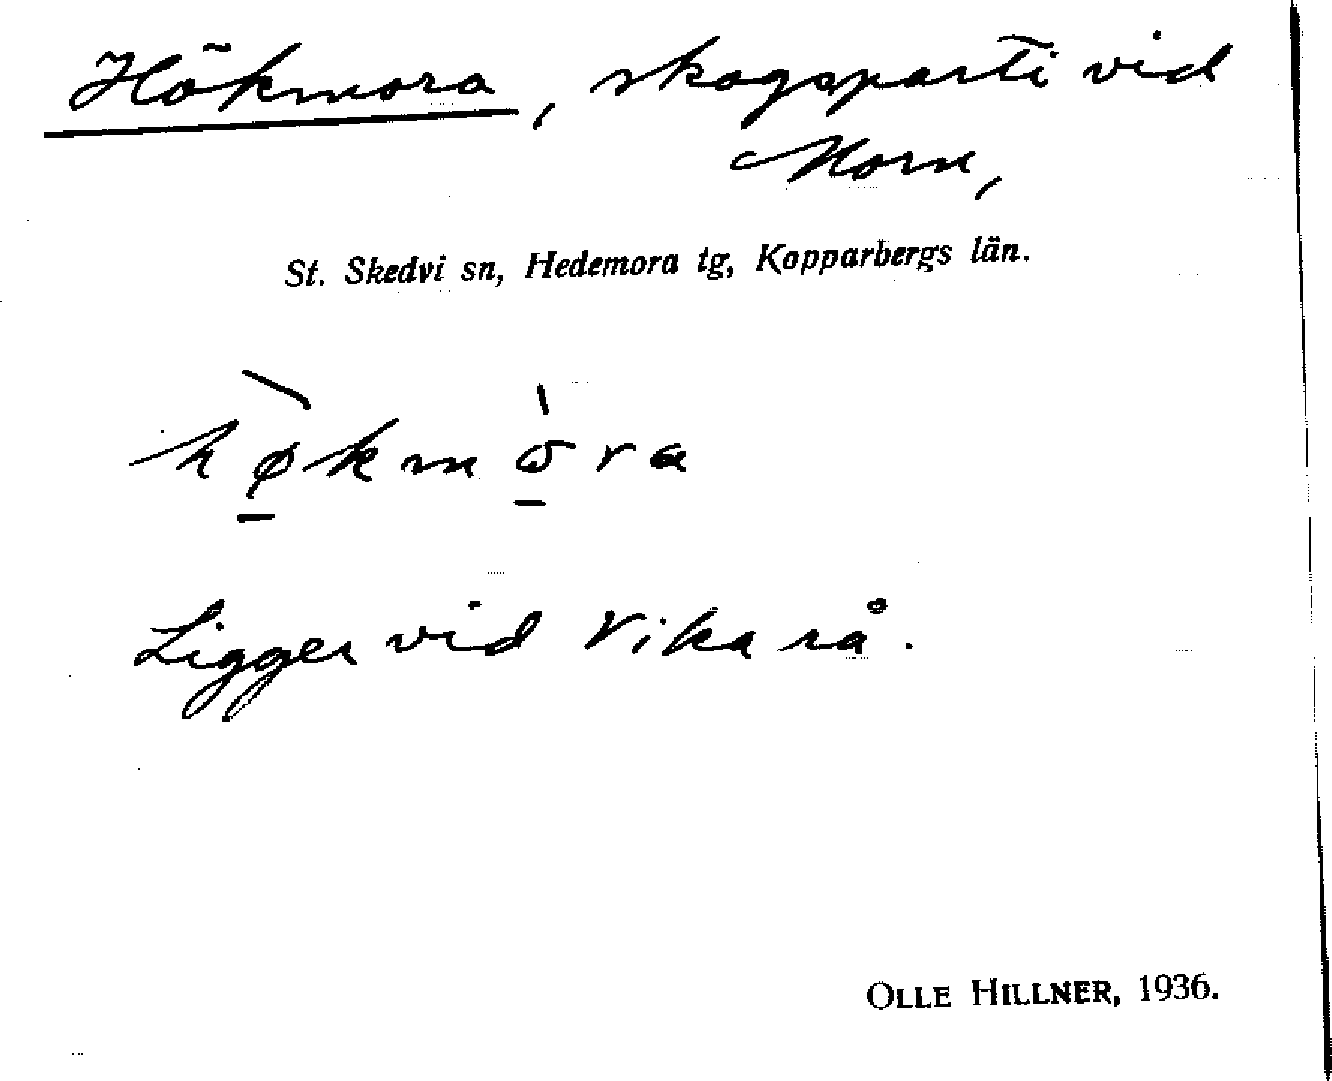 Hökmora, skogsparti vid
Morn,
St. Skedvi sn, Hedemora tg, Kopparbergs län.
hø̠̀kmò̠ra
Ligger vid Vika rå.
OLLE HILLNER, 1936.